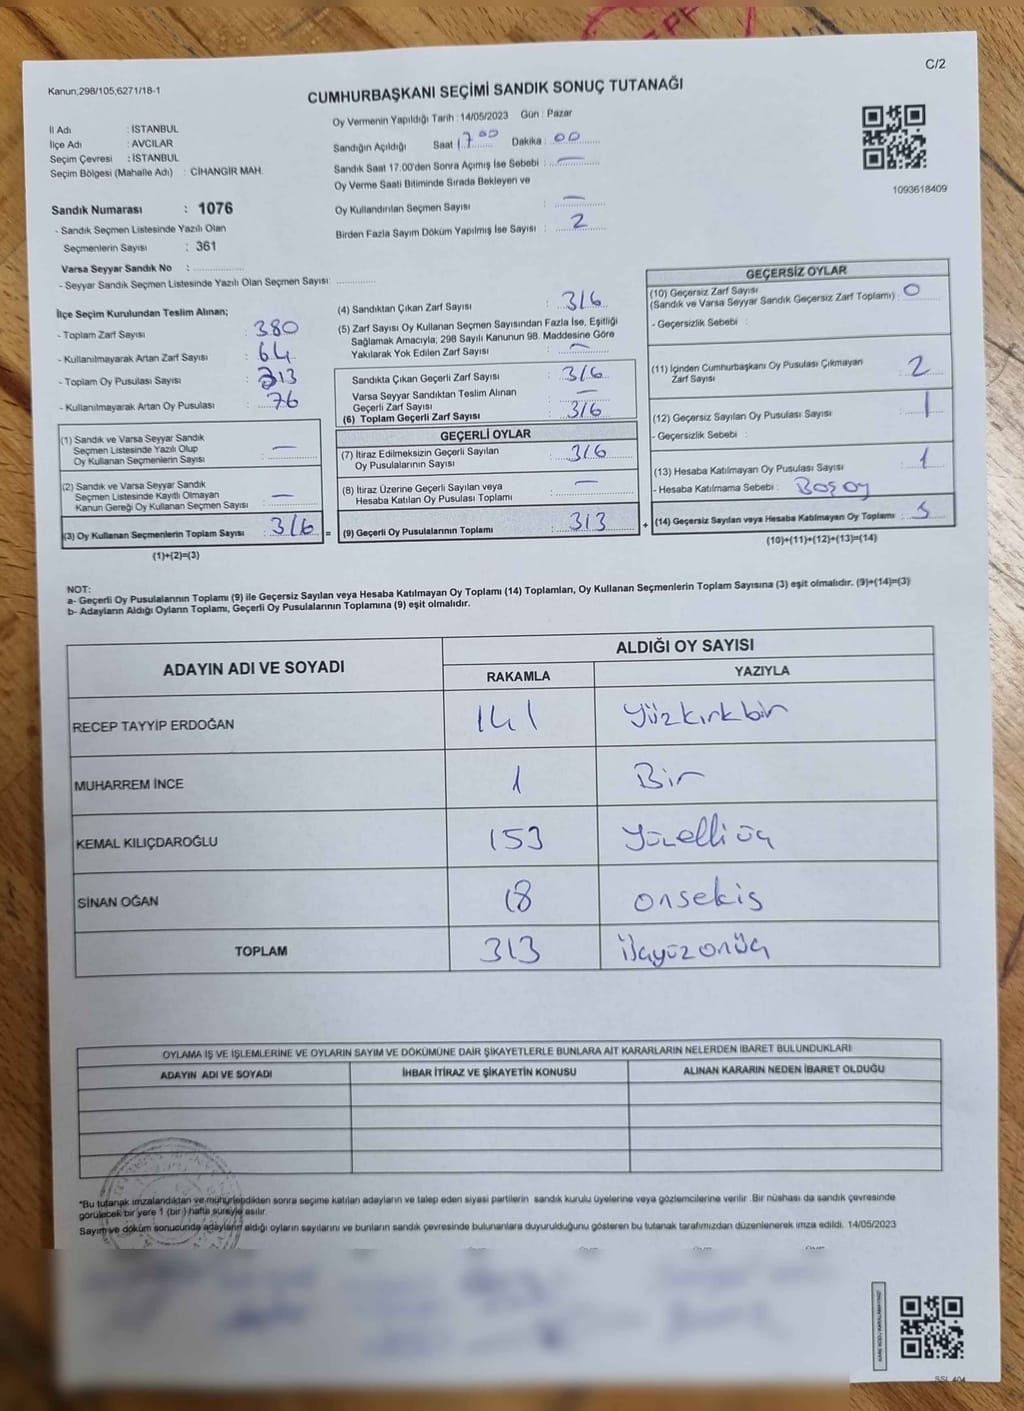 C/2
Kanun;298/105,6271/18-1
CUMHURBAŞKANI SEÇİMİ SANDIK SONUÇ TUTANAĞI
İl Adı : İSTANBUL
İlçe Adı : AVCILAR
Seçim Çevresi : İSTANBUL
Seçim Bölgesi (Mahalle Adı) : CİHANGİR MAH.
Sandık Numarası : 1076
- Sandık Seçmen Listesinde Yazılı Olan
Seçmenlerin Sayısı : 361
Varsa Seyyar Sandık No :
- Seyyar Sandık Seçmen Listesinde Yazılı Olan Seçmen Sayısı:
Oy Vermenin Yapıldığı Tarih : 14/05/2023 Gün : Pazar
Sandığın Açıldığı Saat : 17.00 Dakika : 00
Sandık Saat 17:00'den Sonra Açımış İse Sebebi : —
Oy Verme Saati Bitiminde Sırada Bekleyen ve
Oy Kullandırılan Seçmen Sayısı : —
Birden Fazla Sayım Döküm Yapılmış İse Sayısı : 2
1093618409
İlçe Seçim Kurulundan Teslim Alınan;
- Toplam Zarf Sayısı : 380
- Kullanılmayarak Artan Zarf Sayısı : 64
- Toplam Oy Pusulası Sayısı : 313
- Kullanılmayarak Artan Oy Pusulası : 76
(1) Sandık ve Varsa Seyyar Sandık
Seçmen Listesinde Yazılı Olup
Oy Kullanan Seçmenlerin Sayısı : —
(2) Sandık ve Varsa Seyyar Sandık
Seçmen Listesinde Kayıtlı Olmayan
Kanun Gereği Oy Kullanan Seçmen Sayısı : —
(3) Oy Kullanan Seçmenlerin Toplam Sayısı : 316 =
(1)+(2)=(3)
(4) Sandıktan Çıkan Zarf Sayısı : 316
(5) Zarf Sayısı Oy Kullanan Seçmen Sayısından Fazla İse, Eşitliği
Sağlamak Amacıyla; 298 Sayılı Kanunun 98. Maddesine Göre
Yakılarak Yok Edilen Zarf Sayısı : —
Sandıkta Çıkan Geçerli Zarf Sayısı : 316
Varsa Seyyar Sandıktan Teslim Alınan
Geçerli Zarf Sayısı : —
(6) Toplam Geçerli Zarf Sayısı : 316
GEÇERLİ OYLAR
(7) İtiraz Edilmeksizin Geçerli Sayılan
Oy Pusulalarının Sayısı : 316
(8) İtiraz Üzerine Geçerli Sayılan veya
Hesaba Katılan Oy Pusulası Toplamı : —
(9) Geçerli Oy Pusulalarının Toplamı : 313 +
GEÇERSİZ OYLAR
(10) Geçersiz Zarf Sayısı
(Sandık ve Varsa Seyyar Sandık Geçersiz Zarf Toplamı) : 0
- Geçersizlik Sebebi :
(11) İçinden Cumhurbaşkanı Oy Pusulası Çıkmayan
Zarf Sayısı : 2
(12) Geçersiz Sayılan Oy Pusulası Sayısı : 1
- Geçersizlik Sebebi :
(13) Hesaba Katılmayan Oy Pusulası Sayısı : 1
- Hesaba Katılmama Sebebi : Boş oy
(14) Geçersiz Sayılan veya Hesaba Katılmayan Oy Toplamı : 5
(10)+(11)+(12)+(13)=(14)
NOT:
a- Geçerli Oy Pusulalarının Toplamı (9) ile Geçersiz Sayılan veya Hesaba Katılmayan Oy Toplamı (14) Toplamları, Oy Kullanan Seçmenlerin Toplam Sayısına (3) eşit olmalıdır. (9)+(14)=(3)
b- Adayların Aldığı Oyların Toplamı, Geçerli Oy Pusulalarının Toplamına (9) eşit olmalıdır.
ADAYIN ADI VE SOYADI ALDIĞI OY SAYISI
RAKAMLA YAZIYLA
RECEP TAYYİP ERDOĞAN 141 Yüzkırkbir
MUHARREM İNCE 1 Bir
KEMAL KILIÇDAROĞLU 153 Yüzelliüç
SİNAN OĞAN 18 onsekis
TOPLAM 313 üçyüzonüç
OYLAMA İŞ VE İŞLEMLERİNE VE OYLARIN SAYIM VE DÖKÜMÜNE DAİR ŞİKAYETLERLE BUNLARA AİT KARARLARIN NELERDEN İBARET BULUNDUKLARI
ADAYIN ADI VE SOYADI İHBAR İTİRAZ VE ŞİKAYETİN KONUSU ALINAN KARARIN NEDEN İBARET OLDUĞU
*Bu tutanak imzalandıktan ve mühürlendikten sonra seçime katılan adayların ve talep eden siyasi partilerin sandık kurulu üyelerine veya gözlemcilerine verilir. Bir nüshası da sandık çevresinde
görülecek bir yere 1 (bir) hafta süreyle asılır.
Sayım ve döküm sonucunda adayların aldığı oyların sayılarını ve bunların sandık çevresinde bulunanlara duyurulduğunu gösteren bu tutanak tarafımızdan düzenlenerek imza edildi. 14/05/2023
SSL 404